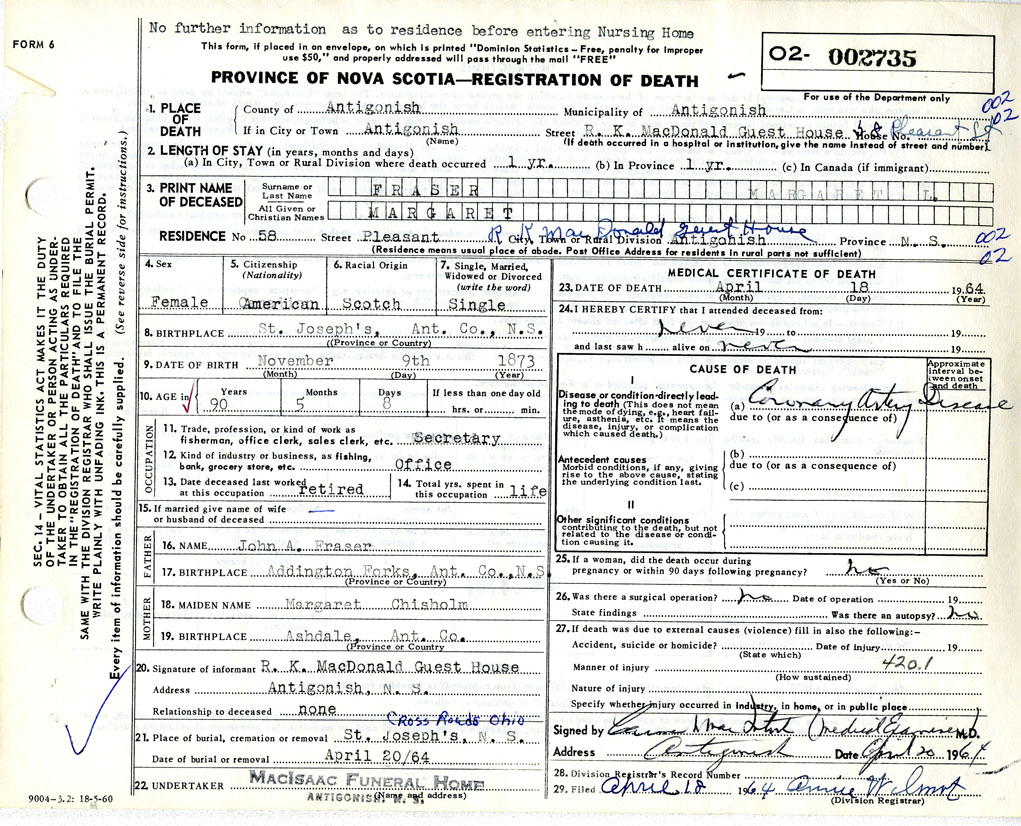 No further information as to residence before entering Nursing Home
FORM 6
This form, if placed in an envelope, on which is printed "Dominion Statistics - Free, penalty for improper
use $50," and properly addressed will pass through the mail "FREE"
PROVINCE OF NOVA SCOTIA—REGISTRATION OF DEATH
O2- 002735
For use of the Department only
002
02
1. PLACE OF DEATH
County of Antigonish Municipality of Antigonish
If in City or Town Antigonish Street R. K. MacDonald Guest House House No. 68 Pleasant St
(Name) (If death occurred in a hospital or institution, give the name instead of street and number).
2. LENGTH OF STAY (in years, months and days)
(a) In City, Town or Rural Division where death occurred 1 yr. (b) In Province 1 yr. (c) In Canada (if immigrant)
3. PRINT NAME OF DECEASED
Surname or Last Name FRASER MARGARET L.
All Given or Christian Names MARGARET
R K MacDonald Guest House
RESIDENCE No 58 Street Pleasant City, Town or Rural Division Antigonish Province N. S.
002
02
(Residence means usual place of abode. Post Office Address for residents in rural parts not sufficient)
4. Sex
Female
5. Citizenship (Nationality)
American
6. Racial Origin
Scotch
7. Single, Married, Widowed or Divorced (write the word)
Single
8. BIRTHPLACE St. Joseph's, Ant. Co., N.S.
((Province or Country)
9. DATE OF BIRTH November 9th 1873
(Month) (Day) (Year)
10. AGE in Years 90 Months 5 Days 8 If less than one day old hrs. or min.
OCCUPATION
11. Trade, profession, or kind of work as
fisherman, office clerk, sales clerk, etc. Secretary
12. Kind of industry or business, as fishing,
bank, grocery store, etc. Office
13. Date deceased last worked
at this occupation retired
14. Total yrs. spent in
this occupation life
15. If married give name of wife
or husband of deceased
FATHER
16. NAME John A. Fraser
17. BIRTHPLACE Addington Forks, Ant. Co.,N.S
(Province or Country)
MOTHER
18. MAIDEN NAME Margaret Chisholm
19. BIRTHPLACE Ashdale, Ant. Co.
(Province or Country
20. Signature of informant R. K. MacDonald Guest House
Address Antigonish, N. S.
Relationship to deceased none
Cross Roads Ohio
21. Place of burial, cremation or removal St. Joseph's, N. S.
Date of burial or removal April 20/64
22. UNDERTAKER MACISAAC FUNERAL HOME
ANTIGONISH, N. S.
(Name and address)
9004-3.2: 18-5-60
MEDICAL CERTIFICATE OF DEATH
23. DATE OF DEATH April 18 1964
(Month) (Day) (Year)
24. I HEREBY CERTIFY that I attended deceased from:
never 19 to 19
and last saw h alive on never 19
CAUSE OF DEATH
Approximate interval between onset and death
I
Disease or condition directly leading to death (This does not mean the mode of dying, e.g., heart failure, asthenia, etc. It means the disease, injury, or complication which caused death.)
(a) Coronary Artery Disease
due to (or as a consequence of)
Antecedent causes
Morbid conditions, if any, giving
rise to the above cause, stating
the underlying condition last.
(b)
due to (or as a consequence of)
(c)
II
Other significant conditions
contributing to the death, but not
related to the disease or condition causing it.
25. If a woman, did the death occur during
pregnancy or within 90 days following pregnancy? no
(Yes or No)
26. Was there a surgical operation? no Date of operation 19
State findings Was there an autopsy? no
27. If death was due to external causes (violence) fill in also the following:-
Accident, suicide or homicide? Date of injury 19
(State which)
Manner of injury 420.1
(How sustained)
Nature of injury
Specify whether injury occurred in industry, in home, or in public place
Signed by MacIntosh (Medical Examiner) M.D.
Address Antigonish Date April 20 1964
28. Division Registrar's Record Number
29. Filed April 18 1964 Annie Wilmot
(Division Registrar)
SEC. 14 - VITAL STATISTICS ACT MAKES IT THE DUTY
OF THE UNDERTAKER OR PERSON ACTING AS UNDERTAKER TO OBTAIN ALL THE PARTICULARS REQUIRED
IN THE "REGISTRATION OF DEATH" AND TO FILE THE
SAME WITH THE DIVISION REGISTRAR WHO SHALL ISSUE THE BURIAL PERMIT.
WRITE PLAINLY WITH UNFADING INK. THIS IS A PERMANENT RECORD.
Every item of information should be carefully supplied. (See reverse side for instructions.)